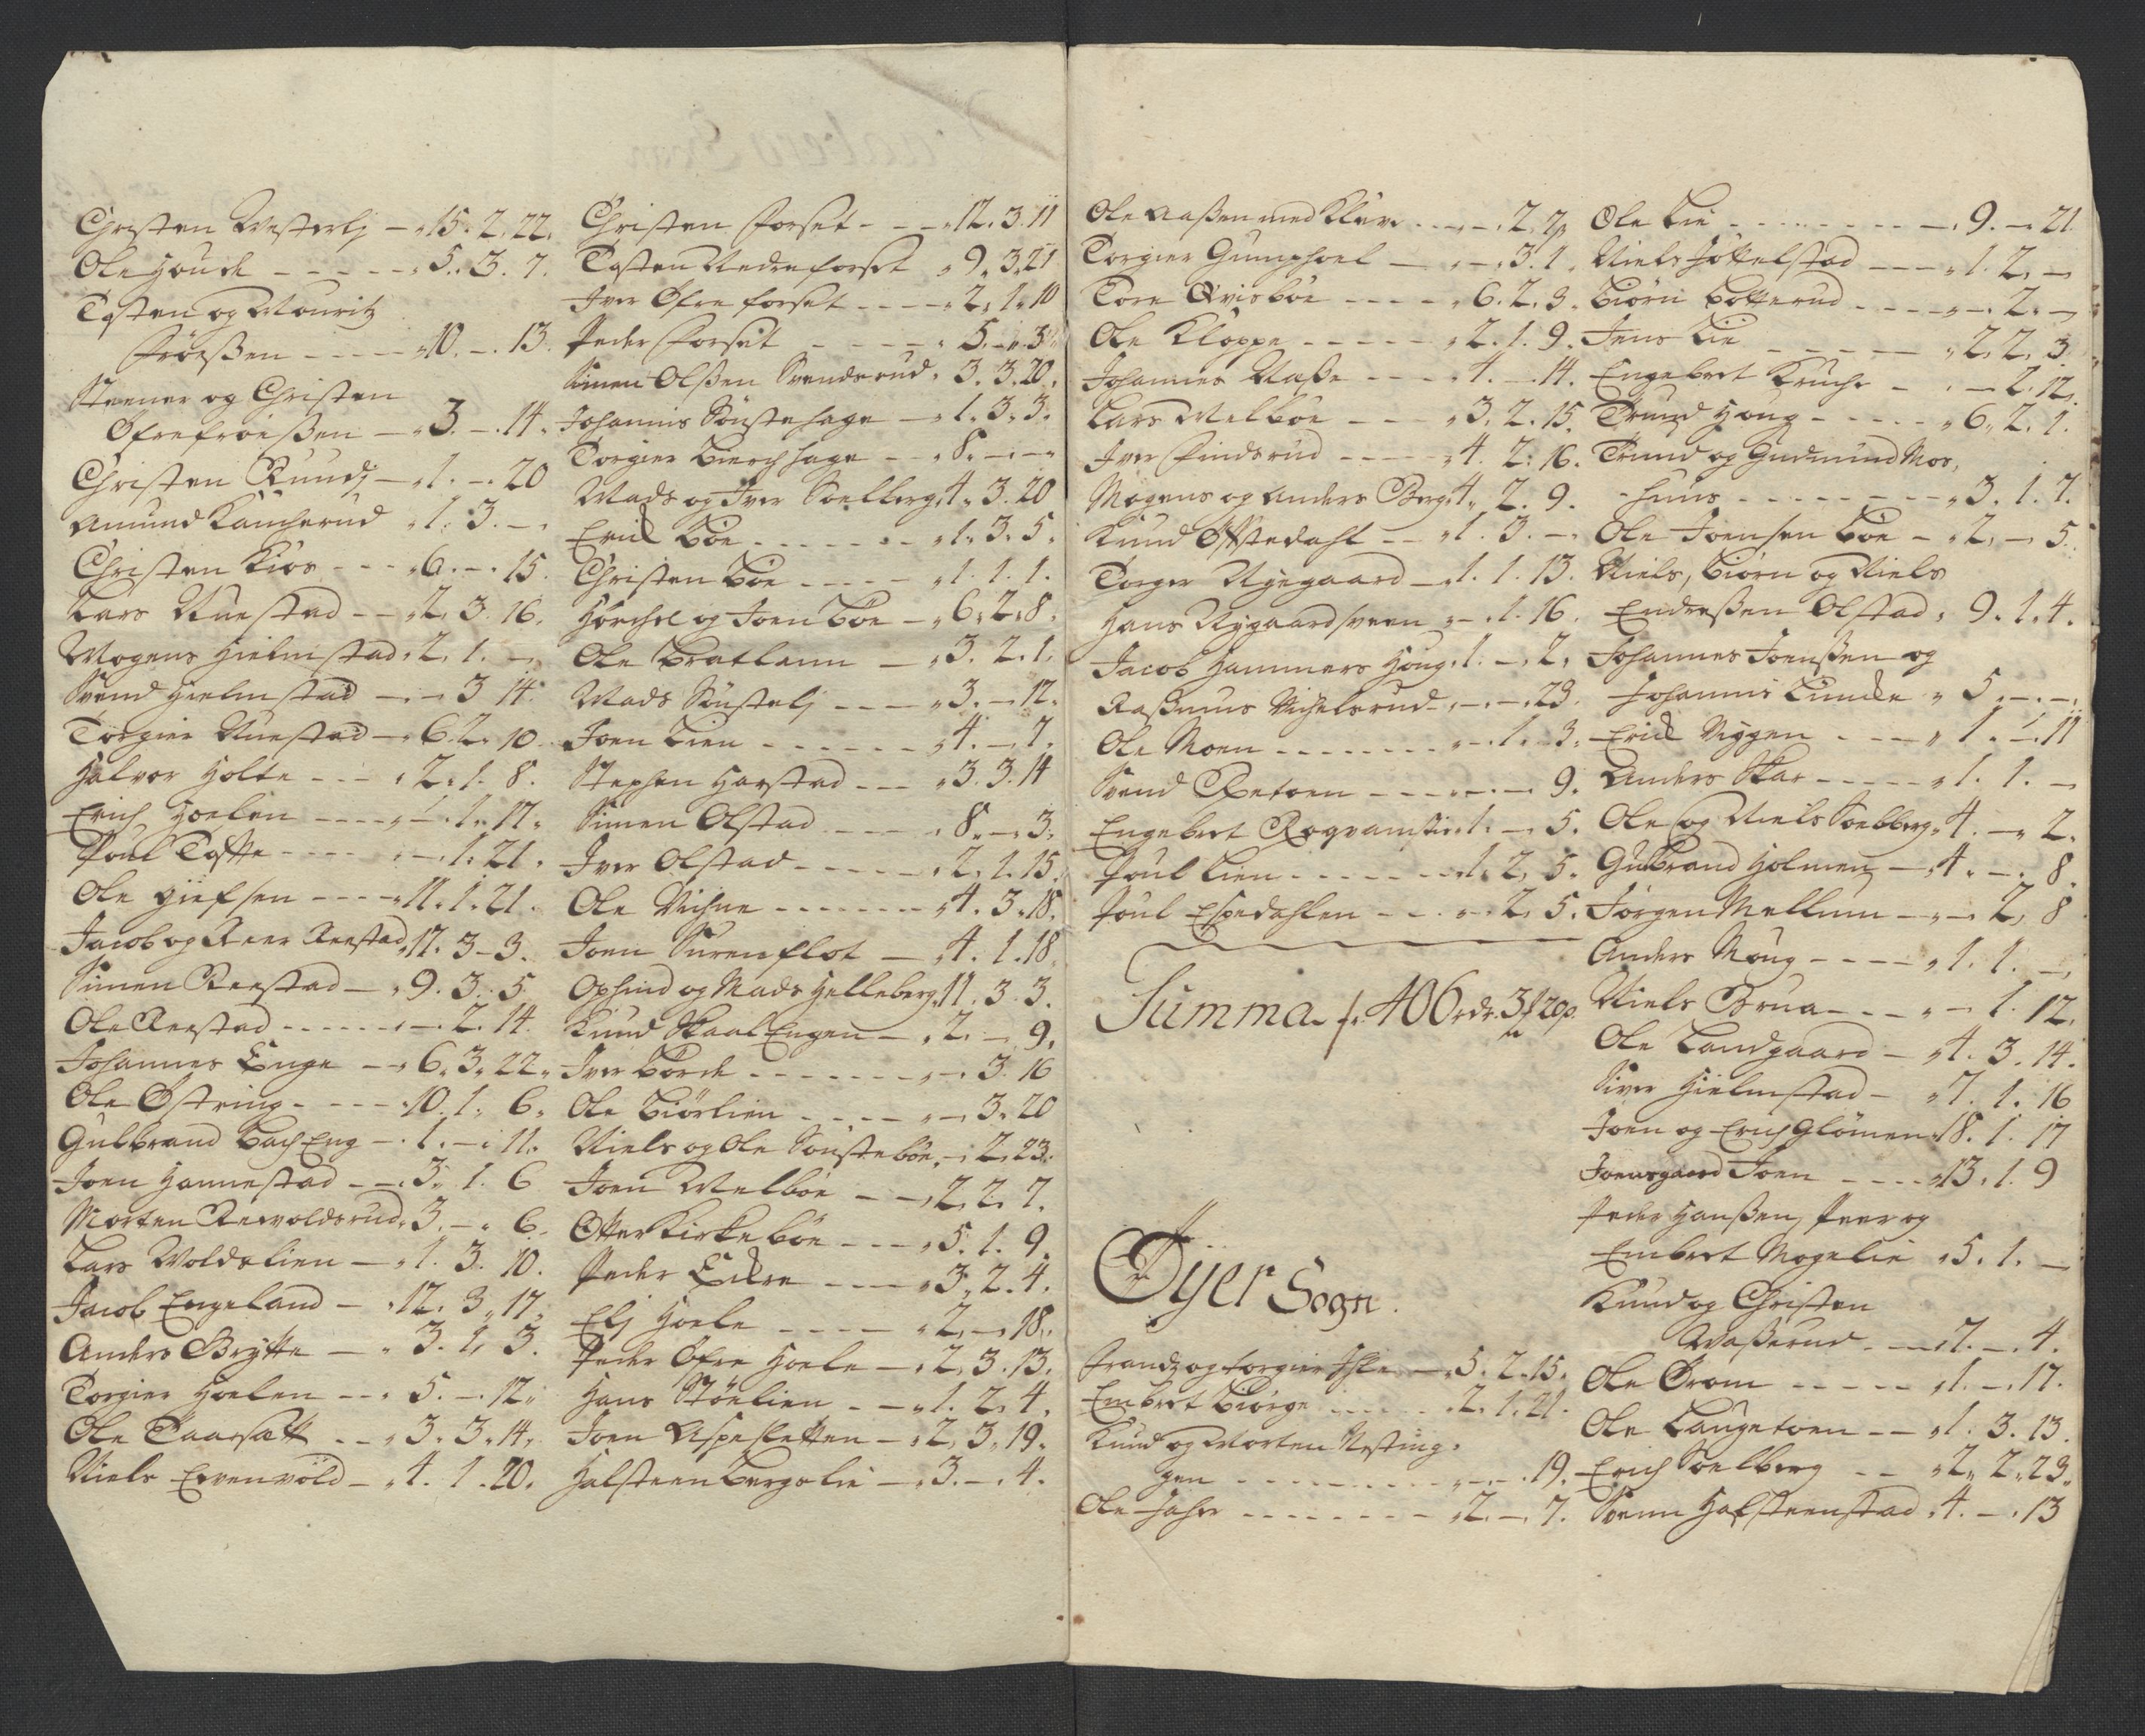 Christen Westerlj - 15. 2. 22.
Ole Houde - - - - - 5. 3. 7.
Tosten og Mouritz
Frøeßen - - - - 10. - . 13.
Steener og Christen
Øfrefroeißen - 3. - . 14.
Christen Rundj - 1. - . 20
Amund Kancherud 1. 3. - .
Christen Kios - - - 6. - . 15.
Lars Ruestad - - 2. 3. 16.
Mogens Hielmstad. 2. 1. -
Svend Hielmstad - - 3 14.
Torgier Ruestad - 6. 2. 10
Halvor Holte - - - 2. 1. 8.
Erich Hoelen - - - - 1. 17.
Poul Tofte - - - - - . 1. 21.
Ole Giefsen - - - - 11. 1. 21.
Jacob og Peer Reestad 17. 3 - 3.
Simen Reestad - 9. 3. 5
Ole Reestad - - - - - - . 2. 14.
Johannes Enge - 6. 3. 22.
Ole Østring - - - - 10. 1. 6.
Gulbrand Bach Eng - . 1. - . 11.
Joen Hannestad - - 3. 1. 6
Morten Reevoldsrud. 3. - . 6.
Lars Woldslien - 1. 3. 10.
Jacob Engeland - 12. 3. 17.
Anders Brytte - 3. 1. 3.
Torgier Hoelen - - 5. - . 12.
Ole Taarsatt - - 3. 3. 14.
Niels Evenvold - 4. 1. 20.
Christen Forset - - - 12. 3. 11
Tosten Nedreforset 9. 3. 21
Iver Øfre forset - - - - 2. 1. 10
Peder Forset - - - - - 5. - . 3
Simen Olßen Svendsrud. 3. 3. 20.
Johannis Sønstehage - 1. 3. 3.
Torgier Bierchhage - - 8. - . -
Mads og Iver Soelberg 4. 3. 20
Erich Bøe - - - - - - 1. 3. 5.
Christen Bøe - - - - 1. 1. 1.
Herchel og Joen Bøe - 6. 2. 8.
Ole Bratlann - 3. 2. 1.
Mads Sønstelj - - - 3. - 12.
Joen Lien - - - - - - 4. - . 7.
Stephen Harstad - - 3. 3. 14
Simen Olstad - - - - 8. - . 3.
Iver Olstad - - - - - 2. 1. 15.
Ole Vichne - - - - - - 4. 3. 18.
Joen Surenflot - 4. 1. 18.
Ophind og Mads Helleberg 11. 3. 3.
Knud Skaal Engen - 2. - 9.
Iver Børde - - - - - - - . 3. 16
Ole Biørlien - - - - - 3. 20
Niels og Ole Sønstebøe. - 2. 23.
Joen Melbøe - - 2. 2. 7.
Otter Kirkebøe - - - 5. 1. 9.
Peder Endre - - - 3. 2. 4.
Elj Hoele - - - - 2. - . 18.
Peder Øfre Hoele - 2. 3. 13.
Hans Støelien - - 1. 2. 4.
Joen Aspesletten - 2. 3. 19.
Halsteen Bergelie - . 3. - . 4.
Ole Aaßen med Kleve - - . 2. 2
Torgier Gumphoel - - . 3. 1.
Tore Qvisbøe - - - - 6. 2. 3.
Ole Kloppe - - - - - 2. 1. 9.
Johannes Aaße - - - 4. - . 14.
Lars Melbøe - - - 3. 2. 15.
Iver Findsrud - - - - 4. 2. 16.
Mogens og Anders Berg 4. 2. 9.
Knud Offstedahl - - 1. 3. - .
Torger Nyegaard - 1. 1. 13.
Hans Nygaardsveen - . 1. 16.
Jacob Hammers Houg. 1. - . 2.
Raßmus Nichelsrud - - . - . 23.
Ole Moen - - - - - - - . 1. 3.
Svend Retoen - - - - . - . 9.
Engebret Rogvamstie. 1. - . 5.
Poul Lien - - - - - - - 1. 2. 5.
Poul Espedahlen - - - . - . 2. 5.
Summa - 406 rdr. 3 20
Øÿer Sogn.
Frandz og Torgier Iske - 5. 2. 15.
Embret Biørge - - - - 2. 1. 21.
Knud og Morten Nesting=
gen - - - - - - - - . - . 19.
Ole Jahr - - - - - - - 2. - . 7.
Ole Lie - - - - - - - - . 9. - 21.
Niels Jottelstad - - - 1. 2. -
Biørn Botterud - - - - . 2. -
Jens Lie - - - - - 2. 2. 3.
Engebret Kruche - . - 2. 12.
Trund Houg - - - - - 6. 2. 1.
Trund og Gudmund Mos=
huus - - - - - - - - 3. 1. 7.
Ole Joensen Bøe - 2. - 5.
Niels, Biørn og Niels
Endreßen Olstad. 9. 1. 4.
Johannes Joenßen og
Johannis Lunde 5. - . - .
Erich Nyggen - - - 1. 1. 11
Anders Skar - - - - - 1. 1. -
Ole og Niels Soelberg. 4. - 2.
Gulbrand Holmen - 4. - . 8.
Jørgen Mellum - - - 2. 8
Anders Moug - - - - 1. 1. -
Niels Brua - - - - - 1. 12.
Ole Landgaard - 4. 3. 14.
Siver Hielmstad - 7. 1. 16
Joen og Erich Glømen 18. 1. 17
Joensgaard Joen - - - - 13. 1. 9
Peder Hanßen, Peer og
Embret Mogelie 5. 1. -
Knud og Christen
Waßerud - - 7. - . 4.
Ole Brom - - - - - 1. - . 17.
Ole Laugetoen - - 1. 3. 13.
Erich Soelberg - - 2. 2. 23.
Svenn Halsteenstad. 4. - . 13